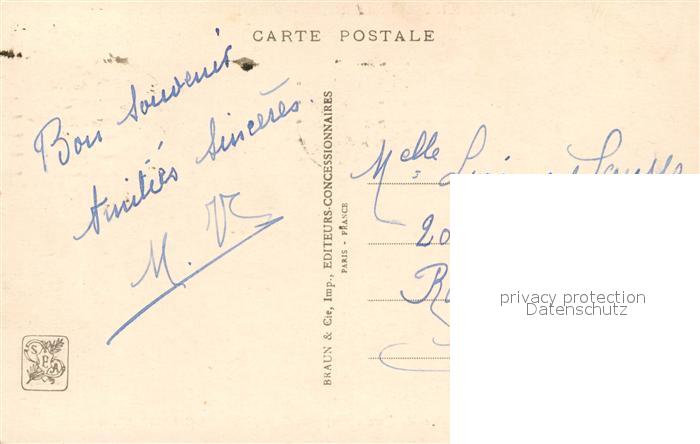 CARTE POSTALE
Bon Souvenir
Amitiés Sincères.
M. V.
BRAUN & Cie, Imp., EDITEURS-CONCESSIONNAIRES
PARIS - FRANCE
Melle
20
privacy protection
Datenschutz
SPA